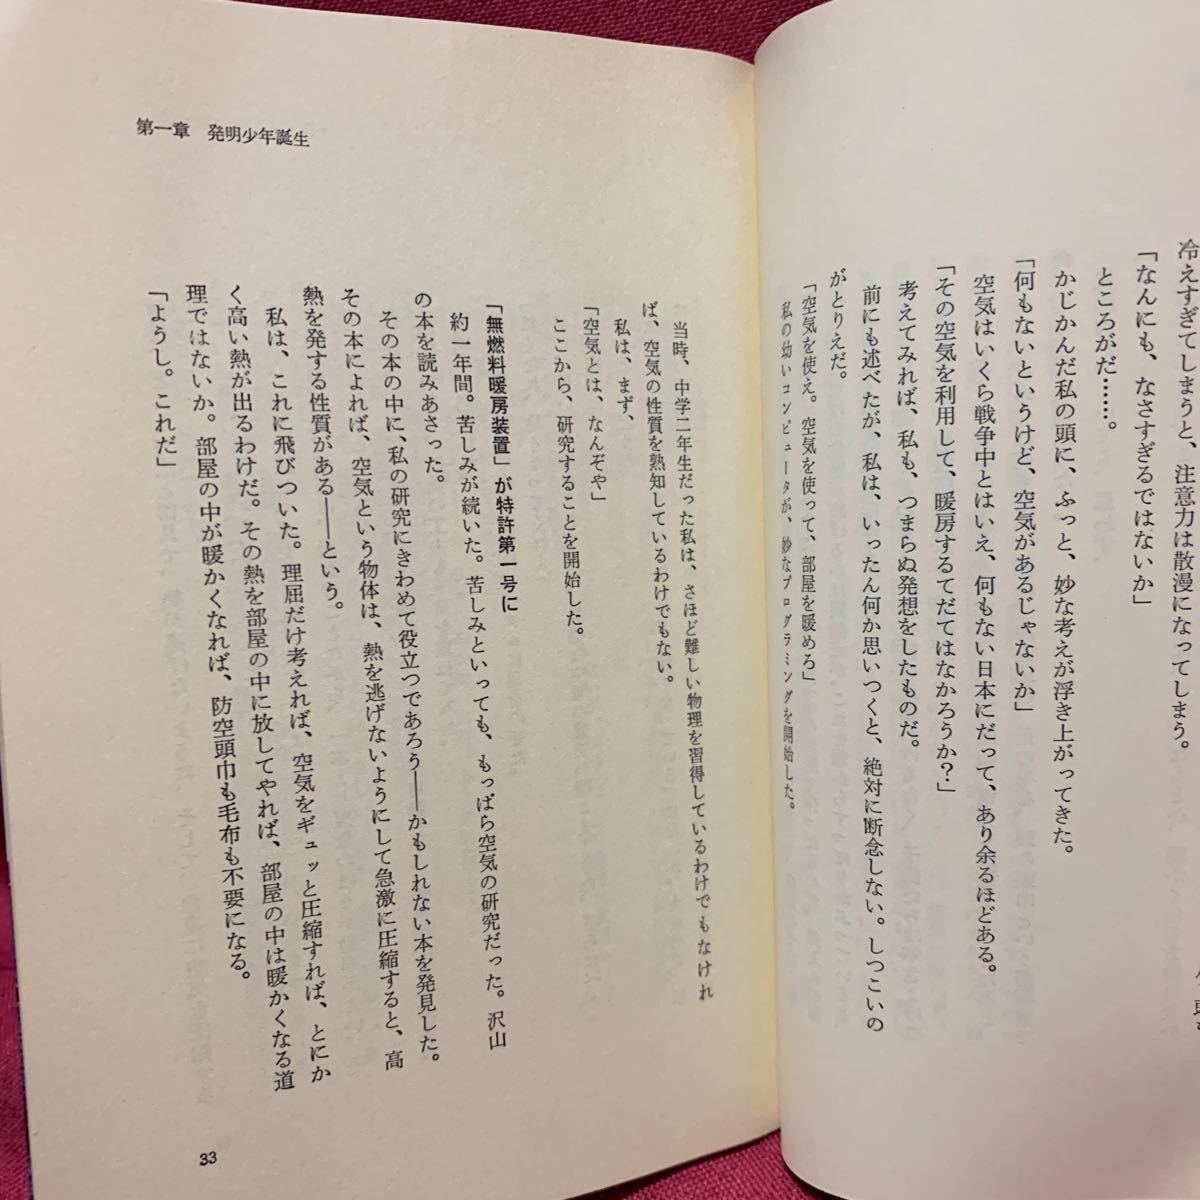 冷えすぎてしまうと、注意力は散漫になってしまう。
「なんにも、なさすぎるではないか」
ところがだ……。
かじかんだ私の頭に、ふっと、妙な考えが浮き上がってきた。
「何もないというけど、空気があるじゃないか」
空気はいくら戦争中とはいえ、何もない日本にだって、あり余るほどある。
「その空気を利用して、暖房するてだてはなかろうか？」
考えてみれば、私も、つまらぬ発想をしたものだ。
前にも述べたが、私は、いったん何か思いつくと、絶対に断念しない。しつこいの
がとりえだ。
「空気を使え。空気を使って、部屋を暖めろ」
私の幼いコンピュータが、妙なプログラミングを開始した。
第一章　発明少年誕生
当時、中学二年生だった私は、さほど難しい物理を習得しているわけでもなけれ
ば、空気の性質を熟知しているわけでもない。
私は、まず、
「空気とは、なんぞや」
ここから、研究することを開始した。
「無燃料暖房装置」が特許第一号に
約一年間。苦しみが続いた。苦しみといっても、もっぱら空気の研究だった。沢山
の本を読みあさった。
その本の中に、私の研究にきわめて役立つであろう――かもしれない本を発見した。
その本によれば、空気という物体は、熱を逃げないようにして急激に圧縮すると、高
熱を発する性質がある――という。
私は、これに飛びついた。理屈だけ考えれば、空気をギュッと圧縮すれば、とにか
く高い熱が出るわけだ。その熱を部屋の中に放してやれば、部屋の中は暖かくなる道
理ではないか。部屋の中が暖かくなれば、防空頭巾も毛布も不要になる。
「ようし。これだ」
33